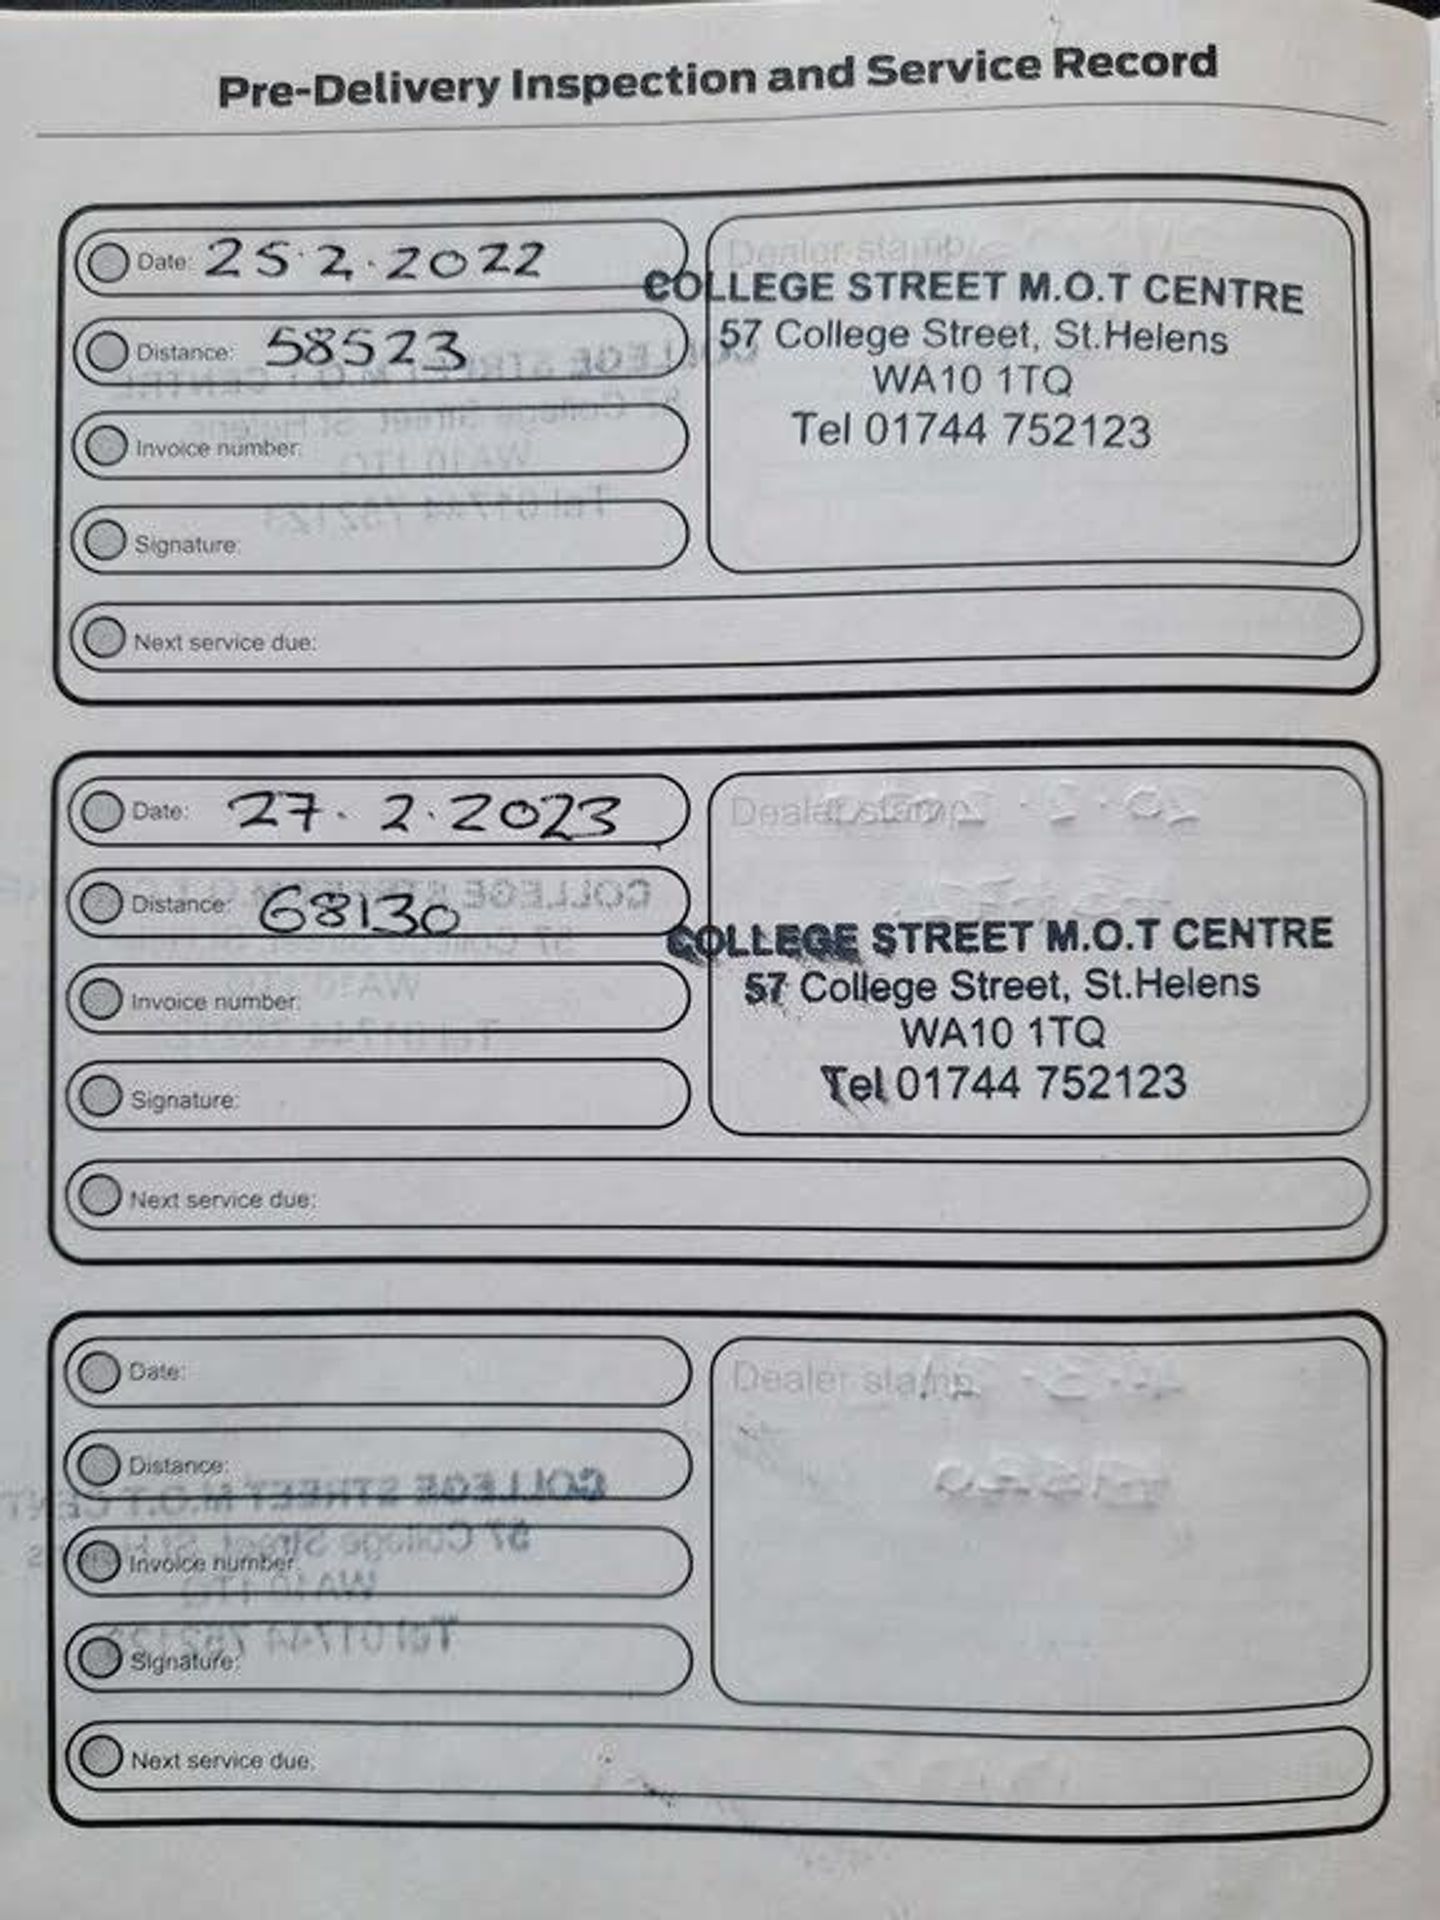 Pre-Delivery Inspection and Service Record
Date: 25.2.2022
Distance: 58523
Invoice number:
Signature:
Next service due:
Dealer stamp
COLLEGE STREET M.O.T CENTRE
57 College Street, St.Helens
WA10 1TQ
Tel 01744 752123
Date: 27.2.2023
Distance: 68130
Invoice number:
Signature:
Next service due:
Dealer stamp
COLLEGE STREET M.O.T CENTRE
57 College Street, St.Helens
WA10 1TQ
Tel 01744 752123
Date:
Distance:
Invoice number:
Signature:
Next service due:
Dealer stamp